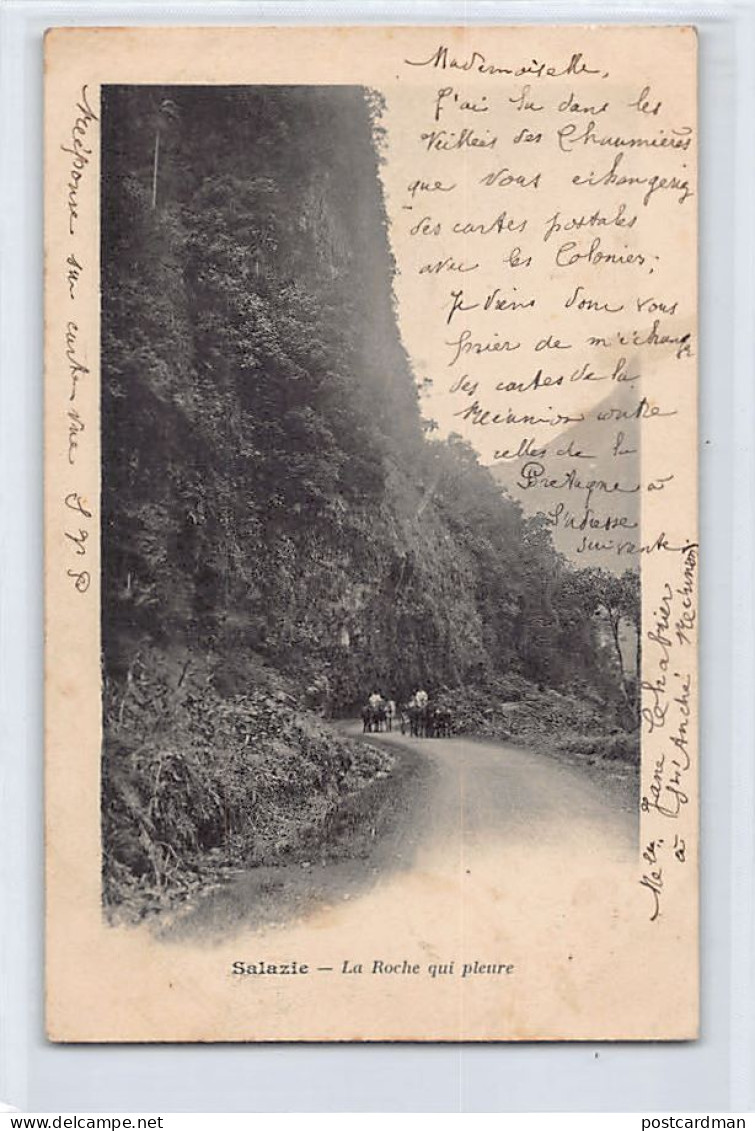 Mademoiselle,
J'ai lu dans les
Veillées des Chaumières
que vous échangeriez
des cartes postales
avec les Colonies;
Je viens donc vous
prier de m'échanger
des cartes de la
Réunion contre
celles de la
Bretagne à
l'adresse
suivante
Melle Jane Chabrier
à St André Réunion
Réponse sur carte vue S V P
Salazie — La Roche qui pleure
postcardman